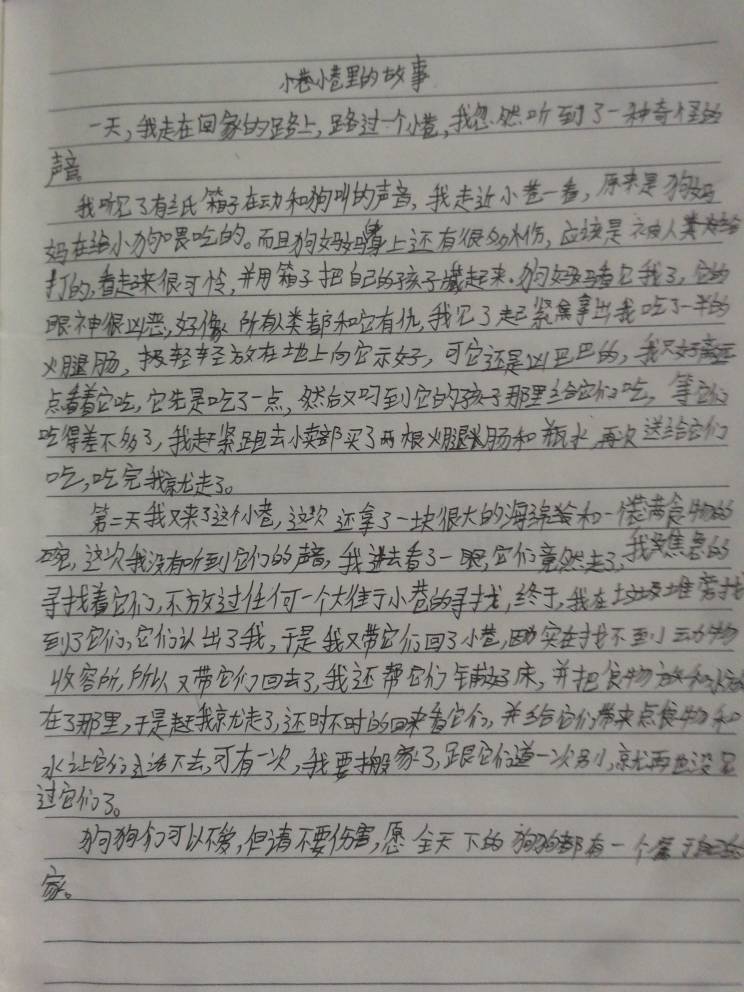 小巷里的故事
一天,我走在回家的路上,路过一个小巷,我忽然听到了一种奇怪的
声音。
我听见了有纸箱子在动和狗叫的声音,我走近小巷一看,原来是狗妈
妈在给小狗喂吃的。而且狗妈妈身上还有很多伤,应该是被人类给
打的,看起来很可怜,并用箱子把自己的孩子藏起来。狗妈妈看见我了,它的
眼神很凶恶,好像所有人类都和它有仇,我见了赶紧拿出我吃了一半的
火腿肠,轻轻放在地上向它示好,可它还是凶巴巴的,我只好离远
点看着它吃,它先是吃了一点,然后又叼到它的孩子那里给它们吃,等它们
吃得差不多了,我赶紧跑去小卖部买了两根火腿肠和瓶水,再次送给它们
吃,吃完我就走了。
第二天我又来了这个小巷,这次还拿了一块很大的海绵垫和一个装满食物的
碗,这次我没有听到它们的声音,我进去看了一眼,它们竟然走了,我焦急的
寻找着它们,不放过任何一个大街于小巷的寻找,终于,我在垃圾堆旁找
到了它们,它们认出了我,于是我又带它们回了小巷,因实在找不到小动物
收容所,所以又带它们回去了,我还帮它们铺好床,并把食物和水放
在了那里,于是我就走了,还时不时的回来看它们,并给它们带来点食物和
水让它们生活下去,可有一次,我要搬家了,跟它们道一次别,就再也没见
过它们了。
狗狗们可以不爱,但请不要伤害,愿全天下的狗狗都有一个属于自己的
家。